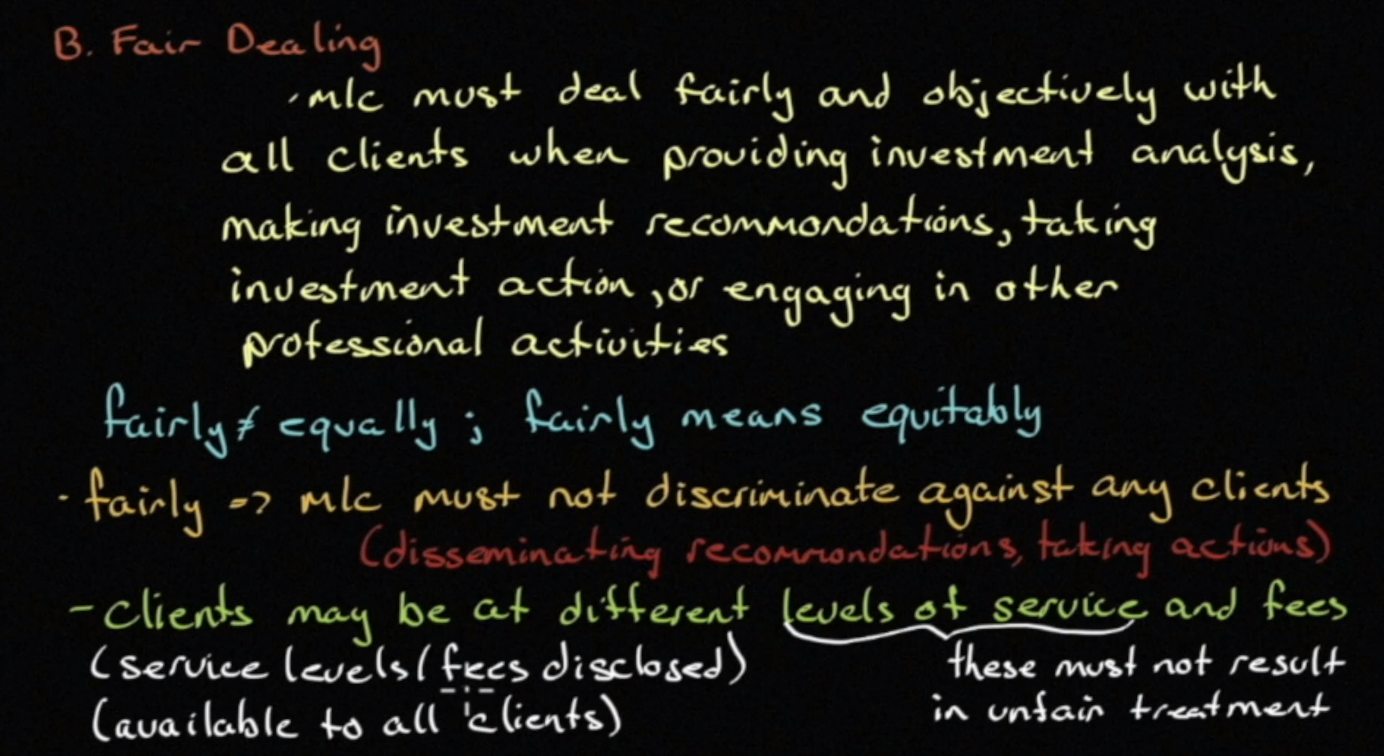 B. Fair Dealing
· mlc must deal fairly and objectively with
all clients when providing investment analysis,
making investment recommondations, taking
investment action, or engaging in other
professional activities
fairly ≠ equally ; fairly means equitably
· fairly => mlc must not discriminate against any clients
(disseminating recommondations, taking actions)
- clients may be at different levels of service and fees
(service levels/fees disclosed)
(available to all clients)
these must not result
in unfair treatment